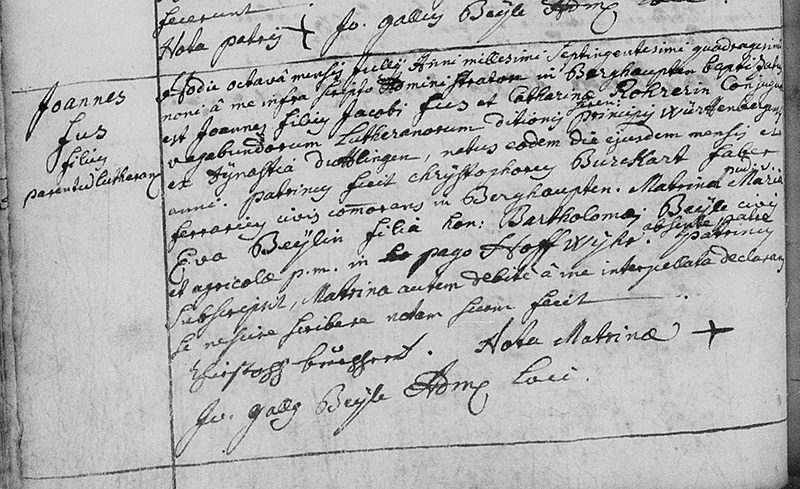 fecerunt
Nota patris + Jo. Gallus Beyle Adm
Joannes
Jus
filius
parentū lutheranorū
Hodie octava mensis Julij Anni millesimi Septingentesimi quadragesimi
noni à me infra scripto Administratore in Berghaupten baptizatus
est Joannes filius Jacobi Jus et Catharinæ Rohrerin Conjugum
vagabundorum Lutheranorum ditionis seren: Principis Württenbergensis
ex Dynastia duttlingen, natus eodem die ejusdem mensis et
anni. patrinus fuit chrystophorus Burckart faber
ferrarius civis comorans in Berghaupten. Matrina pudica Maria
Eva Beylin filia hon: Bartholomæi Beyle civis
et agricolæ p.m. in pago Hoffwyhr. absente patre patrinus
subscripsit, Matrina autem debitè à me interpellata declarans
se nescire scribere notam suam fecit
Christoph burckhert. Nota Matrinæ +
Jo. Gallus Beyle Adm Loci.